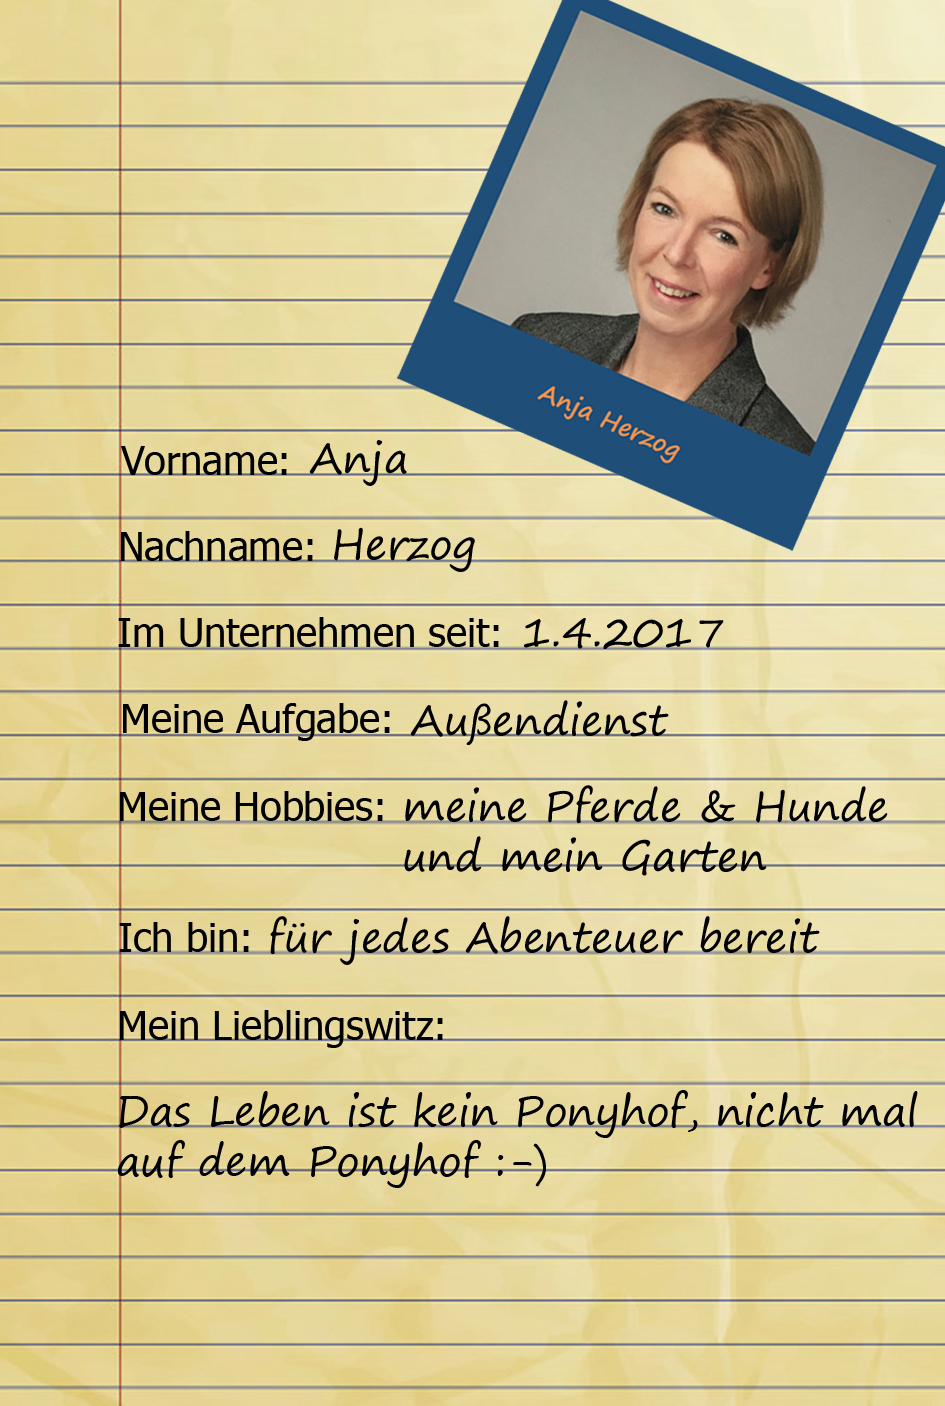 Anja Herzog
Vorname: Anja
Nachname: Herzog
Im Unternehmen seit: 1.4.2017
Meine Aufgabe: Außendienst
Meine Hobbies: meine Pferde & Hunde
und mein Garten
Ich bin: für jedes Abenteuer bereit
Mein Lieblingswitz:
Das Leben ist kein Ponyhof, nicht mal
auf dem Ponyhof :-)